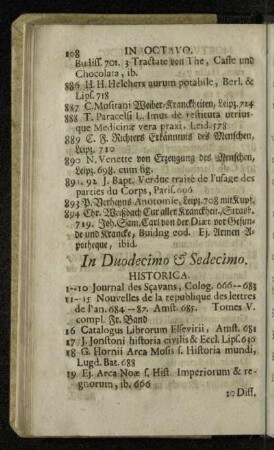 108 IN OCTAVO.
Budiss. 701. 3 Tractate von The, Caffe und
Chocolata, ib.
886 H. H. Helchers aurum potabile, Berl. &
Lips. 718
887 C. Musitani Weiber-Kranckheiten, Leipz. 724
888 T. Paracelsi L. Imus de restituta utrius-
que Medicinæ vera praxi. Leid. 578
889 C. F. Richters Erkänntnis des Menschen,
Leipz. 710
890 N. Venette von Erzeugung des Menschen,
Leipz. 698. cum fig.
891. 92 J. Bapt. Verduc traité de l'usage des
parties du Corps, Paris. 696
893 P. Verheyns Anatomie, Leipz. 708 mit Kupf.
894 Chr. Weißbach Cur aller Kranckheit, Strasb.
719. Joh. Sam. Carl von der Diæt vor Gesun-
de und Krancke, Buiding. eod. Ej. Armen A-
potheque, ibid.
In Duodecimo & Sedecimo.
HISTORICA.
1--10 Journal des Sçavans, Colog. 666--683
11--15 Nouvelles de la republique des lettres
de l'an. 684--87. Amst. 685. Tomes V.
compl. Fr. Band
16 Catalogus Librorum Elsevirii, Amst. 681
17 J. Jonstoni historia civilis & Eccl. Lips. 610
18 G. Hornii Arca Mosis s. Historia mundi,
Lugd. Bat. 688
19 Ej. Arca Noæ s. Hist. Imperiorum & re-
gnorum, ib. 666
20 Diss.